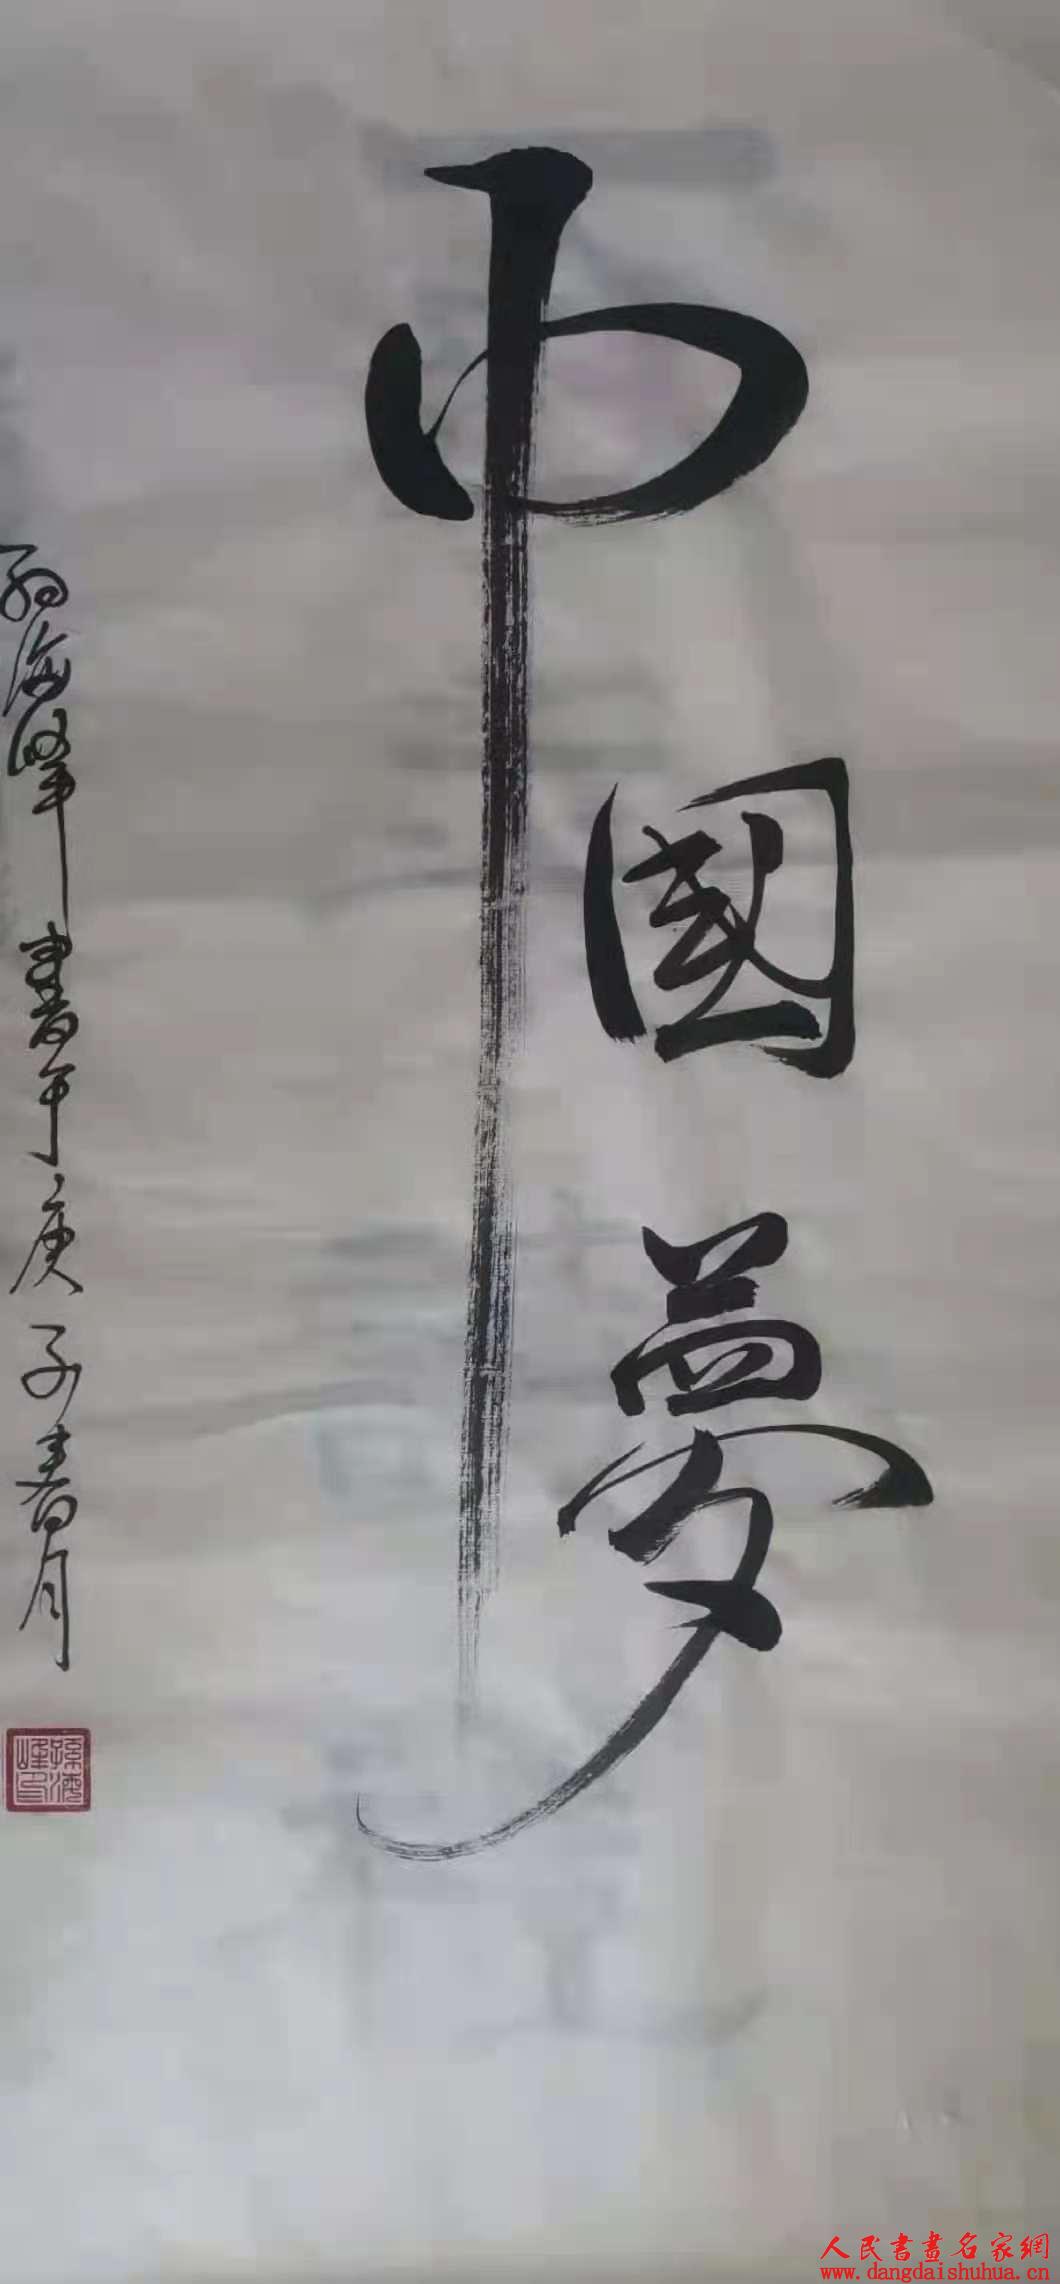 中國夢
孫海峰書于庚子春月
孫海峰印
人民書畫名家網
www.dangdaishuhua.cn